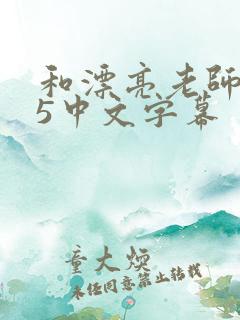 和漂亮老師
5中文字幕
童大煥
未经同意禁止转载